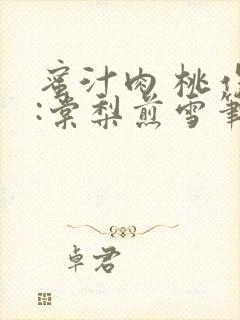 蜜汁肉桃作
:棠梨煎雪笔
卓君